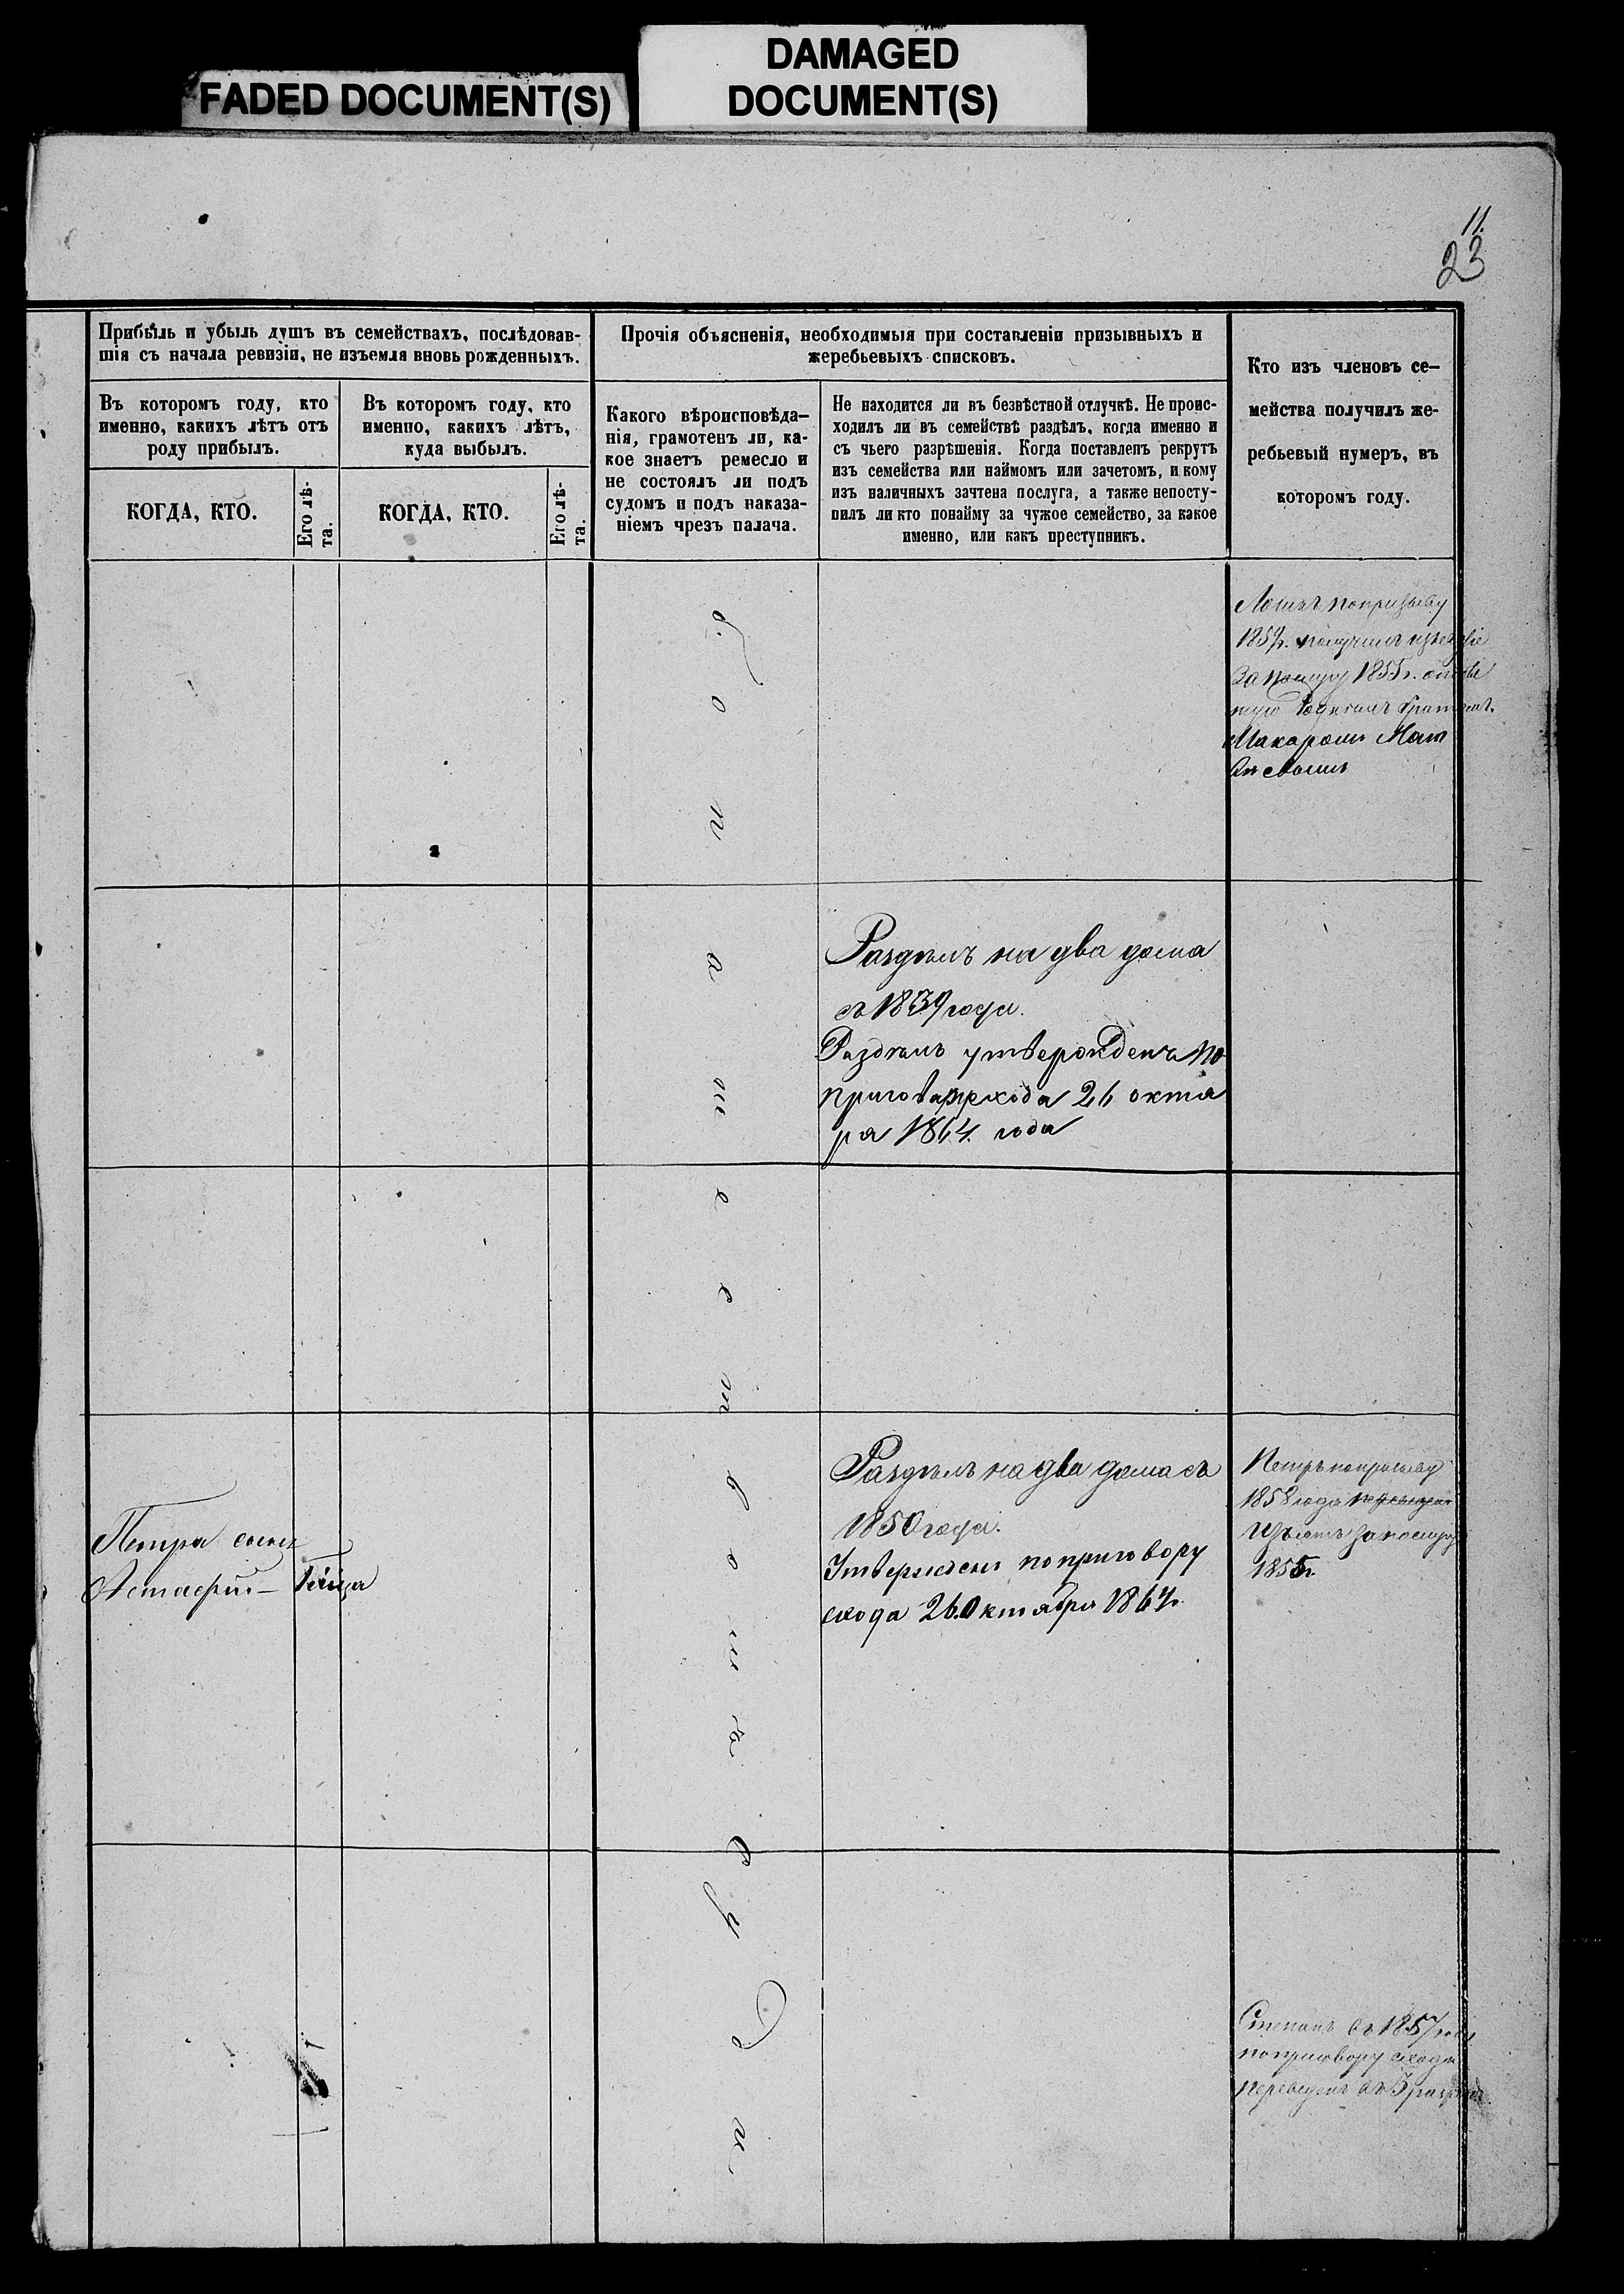 FADED DOCUMENT(S)
DAMAGED
DOCUMENT(S)
11.
23
Прибыль и убыль душъ въ семействахъ, послѣдовав-
шія съ начала ревизіи, не изъемля вновь рожденныхъ.
Въ которомъ году, кто
именно, какихъ лѣтъ отъ
роду прибылъ.
КОГДА, КТО.
Его лѣ-
та.
Въ которомъ году, кто
именно, какихъ лѣтъ,
куда выбылъ.
КОГДА, КТО.
Его лѣ-
та.
Прочія объясненія, необходимыя при составленіи призывныхъ и
жеребьевыхъ списковъ.
Какого вѣроисповѣда-
нія, грамотенъ ли, ка-
кое знаетъ ремесло и
не состоялъ ли подъ
судомъ и подъ наказа-
ніемъ чрезъ палача.
Не находится ли въ безвѣстной отлучкѣ. Не проис-
ходилъ ли въ семействѣ раздѣлъ, когда именно и
съ чьего разрѣшенія. Когда поставленъ рекрутъ
изъ семейства или наймомъ или зачетомъ, и кому
изъ наличныхъ зачтена послуга, а также непосту-
пилъ ли кто понайму за чужое семейство, за какое
именно, или какъ преступникъ.
Кто изъ членовъ се-
мейства получилъ же-
ребьевый нумеръ, въ
которомъ году.
попризыву
получилъ
за 1855г.
Макаромъ Мат
вѣевымъ
Раздѣлъ на два дома
съ 1839 года.
Раздѣлъ утвержденъ по
приговору схода 26 октя
ря 1864. года
Петра сынъ
Астафій
Раздѣлъ на два дома съ
1850 года.
Утвержденъ по приговору
схода 26. Октября 1864г.
Петръ попризыву
1858 года
Изъятъ за
1855г.
Степанъ въ 1857 году
по приговору схода
переведенъ въ 3 разрядъ